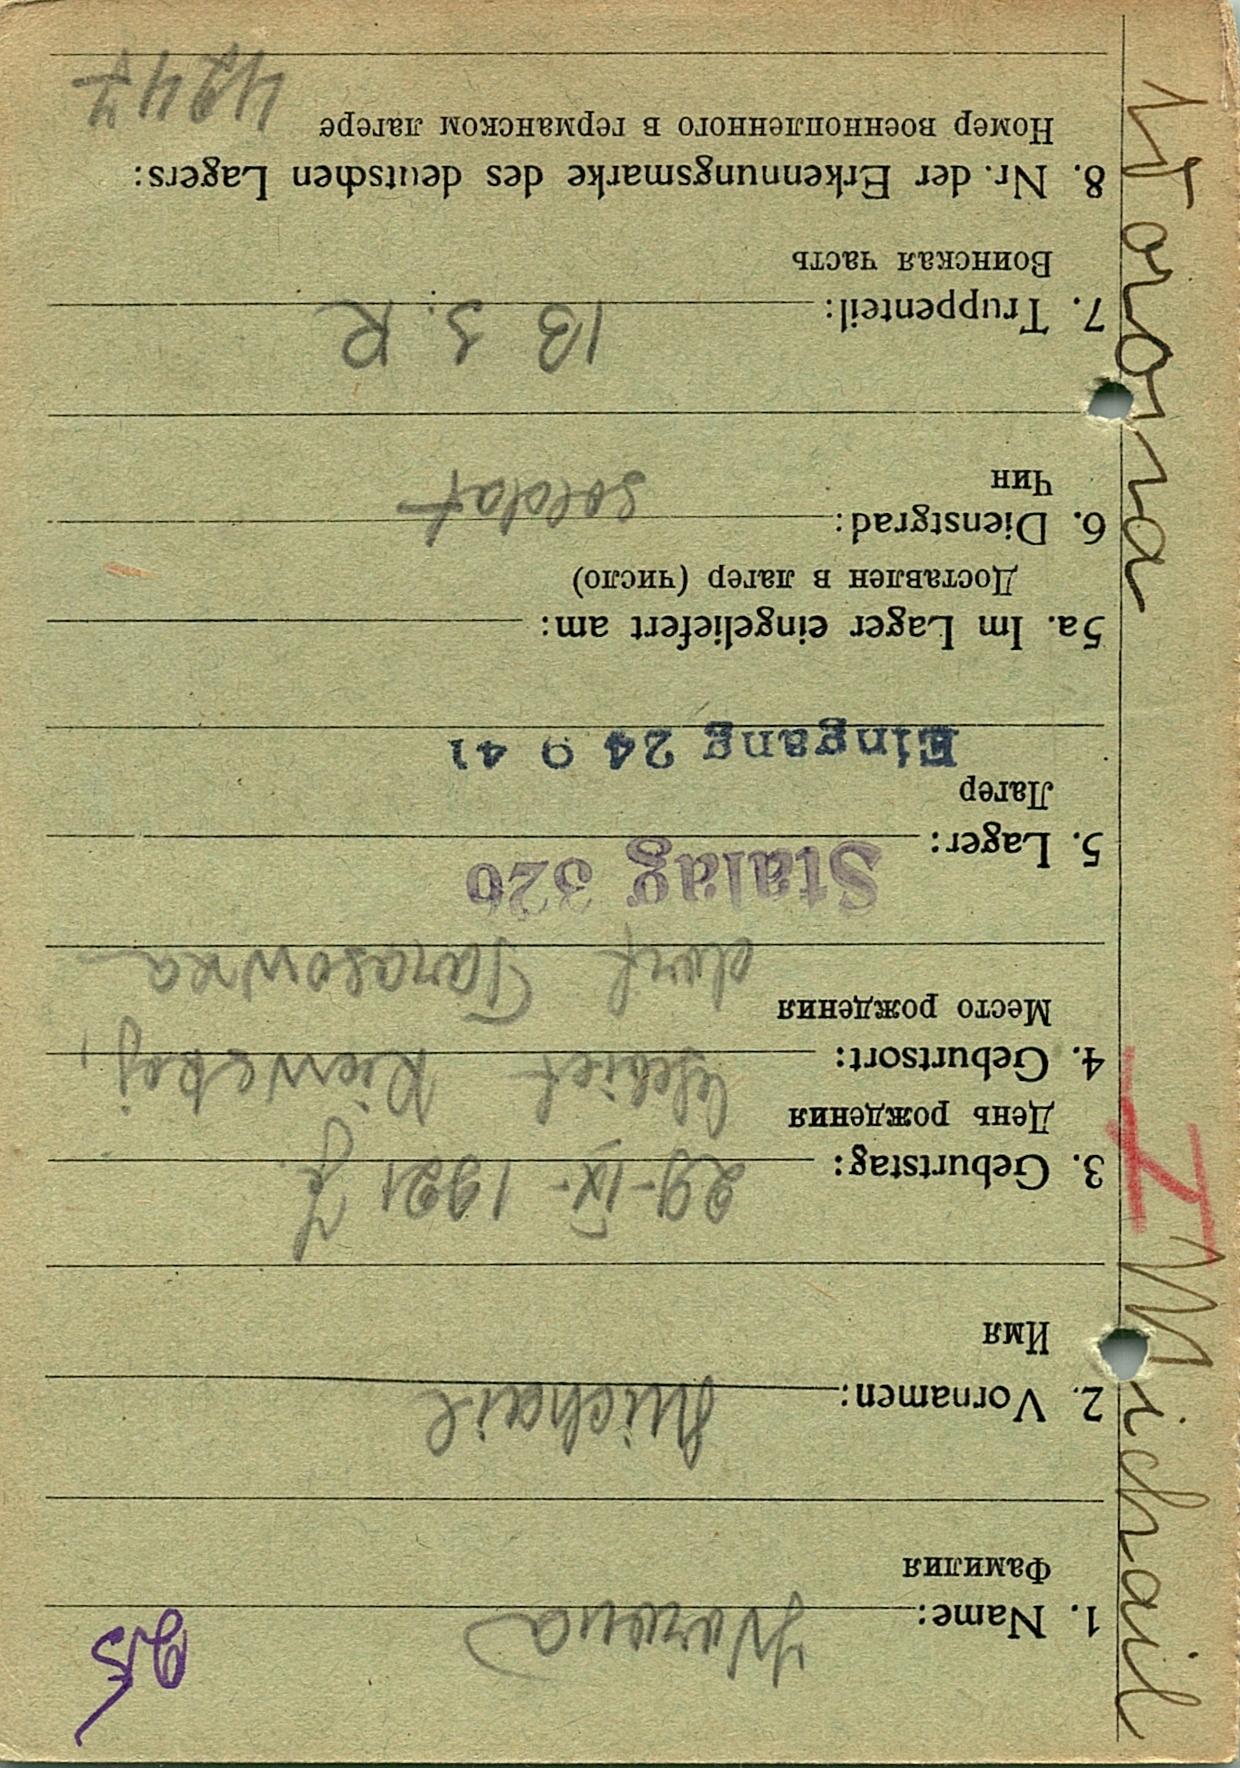 25
1. Name: Worona
Фамилия
2. Vornamen: Michail
Имя
3. Geburtstag: 29-IX-1921 J.
День рождения
4. Geburtsort: Gebiet Kiewskej,
Место рождения
dorf Tarasowka
5. Lager: Stalag 326
Лагер
Eingang 24 9 41
5a. Im Lager eingeliefert am:
Доставлен в лагер (число)
6. Dienstgrad: soldat
Чин
7. Truppenteil: 13 S. R
Воинская часть
8. Nr. der Erkennungsmarke des deutschen Lagers:
Номер военнопленного в германском лагере 4247
Worona
Michail